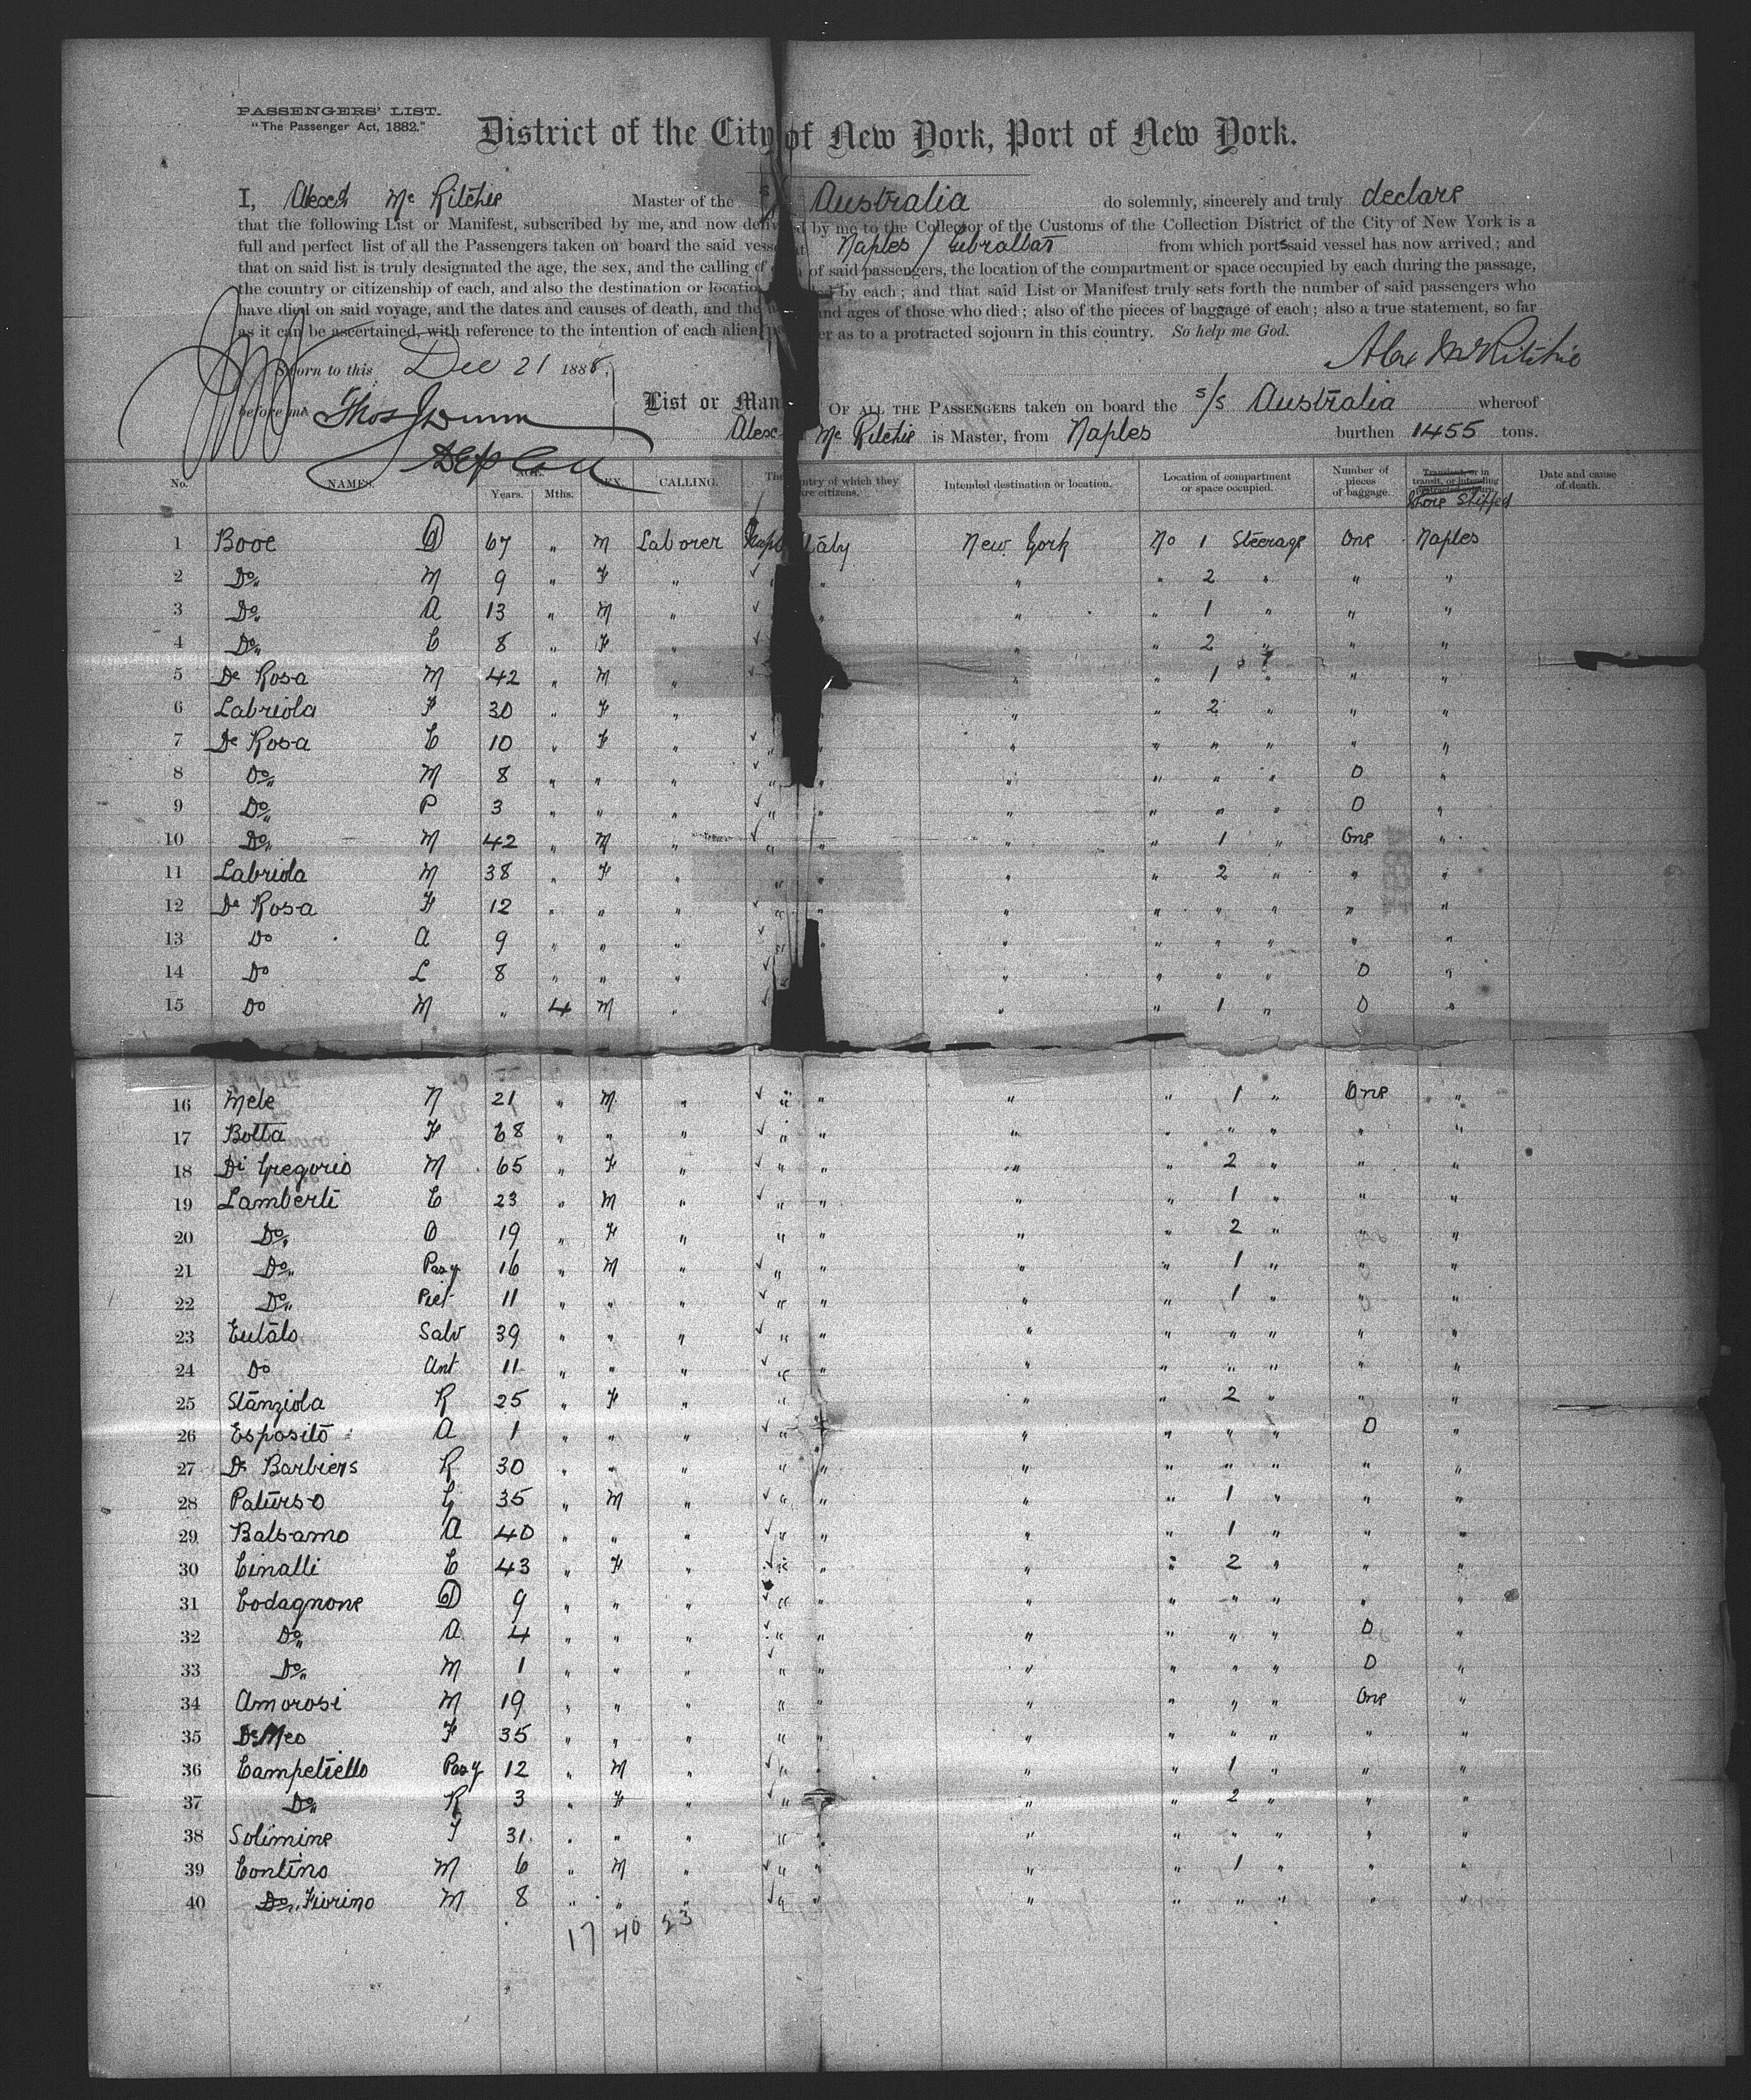 PASSENGERS' LIST.
"The Passenger Act, 1882."
District of the City of New York, Port of New York.
I, Alexd Mc Ritchie Master of the s/s Australia do solemnly, sincerely and truly declare
that the following List or Manifest, subscribed by me, and now delivered by me to the Collector of the Customs of the Collection District of the City of New York is a
full and perfect list of all the Passengers taken on board the said vessel at Naples / Gibraltar from which ports said vessel has now arrived; and
that on said list is truly designated the age, the sex, and the calling of of said passengers, the location of the compartment or space occupied by each during the passage,
the country or citizenship of each, and also the destination or location by each; and that said List or Manifest truly sets forth the number of said passengers who
have died on said voyage, and the dates and causes of death, and the and ages of those who died; also of the pieces of baggage of each; also a true statement, so far
as it can be ascertained, with reference to the intention of each alien as to a protracted sojourn in this country. So help me God.
Alex McRitchie
Sworn to this Dec 21 1888,
before me Thos J Dunn
List or Man OF ALL THE PASSENGERS taken on board the s/s Australia whereof
Alex Mc Ritchie is Master, from Naples burthen 1455 tons.
No. NAMES. AGE. Years. Mths. SEX. CALLING. The country of which they are citizens. Intended destination or location. Location of compartment or space occupied. Number of pieces of baggage. Where Shipped Date and cause of death.
1 Booe D 67 " M Laborer Italy New York No 1 Steerage One Naples
2 Do " M 9 " F " " " " " 2 " " "
3 Do " A 13 " M " " " " " 1 " " "
4 Do " C 8 " F " " " " 2 " " "
5 De Rosa M 42 " M " " " 1 " " "
6 Labriola F 30 " F " " " " 2 " " "
7 De Rosa C 10 " F " " " " " " " " "
8 Do " M 8 " " " " " " " " " 0 "
9 Do " P 3 " " " " " " " " " 0 "
10 Do " M 42 " M " " " " " 1 " One "
11 Labriola M 38 " F " " " " " 2 " " "
12 De Rosa F 12 " " " " " " " " " " "
13 Do A 9 " " " " " " " " " " "
14 Do L 8 " " " " " " " " 0 "
15 Do M " 4 M " " " 1 " 0 "
16 Mele N 21 " M " " " " " 1 " One "
17 Botta F 68 " " " " " " " " " " "
18 Di Gregorio M 65 " F " " " " " 2 " " "
19 Lamberti C 23 " M " " " " " 1 " " "
20 Do " O 19 " F " " " " " 2 " " "
21 Do " Pasq 16 " M " " " " " 1 " " "
22 Do " Piet 11 " " " " " " " 1 " " "
23 Eutalo Salv 39 " " " " " " " " " " "
24 Do Ant 11 " " " " " " " " " " "
25 Stanziola R 25 " F " " " " " 2 " " "
26 Esposito A 1 " " " " " " " " " 0 "
27 De Barbiers R 30 " " " " " " " " " " "
28 Paturso G 35 " M " " " " " 1 " " "
29 Balsamo A 40 " " " " " " " 1 " " "
30 Cinalli C 43 " F " " " " " 2 " " "
31 Codagnone D 9 " " " " " " " " " " "
32 Do " A 4 " " " " " " " " " 0 "
33 Do " M 1 " " " " " " " " " 0 "
34 Amorosi M 19 " " " " " " " " " One "
35 De Meo F 35 " " " " " " " " " " "
36 Campetiello Pasq 12 " M " " " " " 1 " " "
37 Do " R 3 " F " " " " " 2 " " "
38 Solimine F 31 " " " " " " " " " " "
39 Contino M 6 " M " " " " " 1 " " "
40 Do " Fiorino M 8 " " " " " " " " " " "
17 40 23